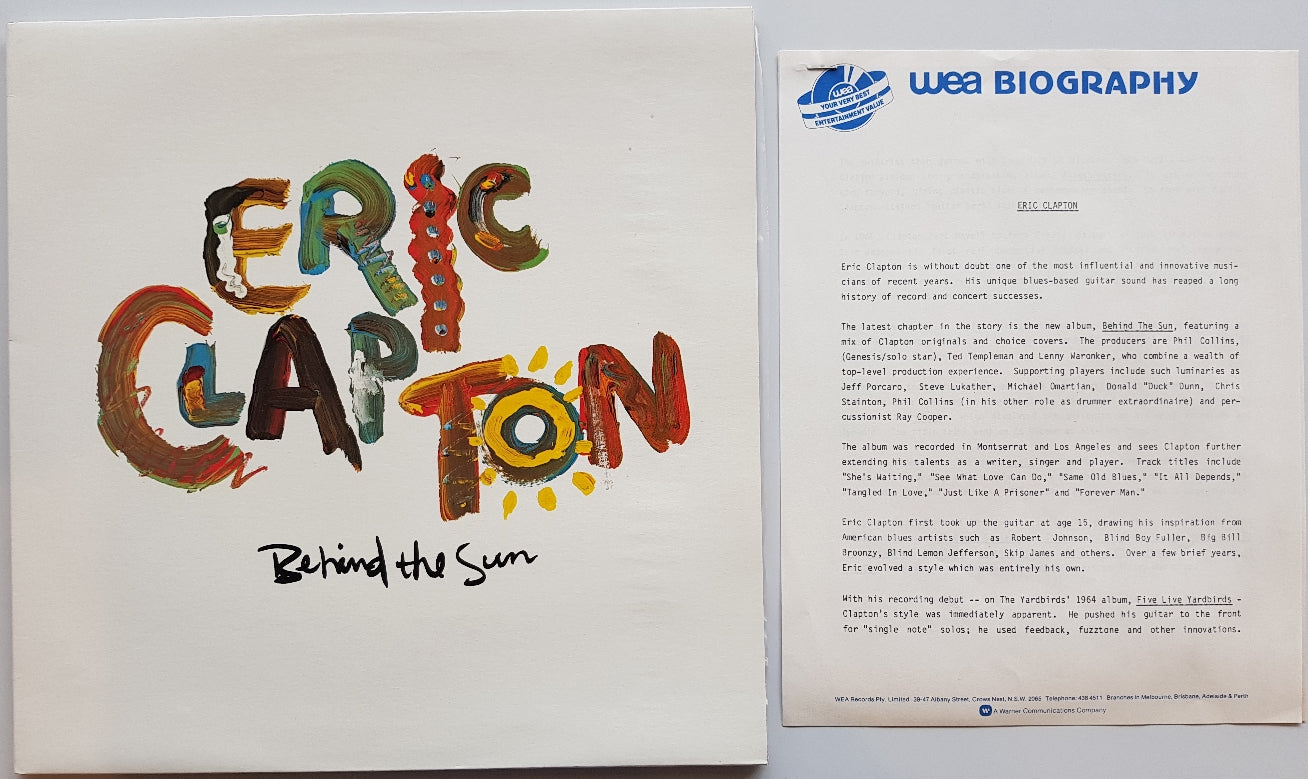 ERIC
CLAPTON
Behind the Sun
wea
YOUR VERY BEST
ENTERTAINMENT VALUE
wea BIOGRAPHY
ERIC CLAPTON
Eric Clapton is without doubt one of the most influential and innovative musi-
cians of recent years. His unique blues-based guitar sound has reaped a long
history of record and concert successes.
The latest chapter in the story is the new album, Behind The Sun, featuring a
mix of Clapton originals and choice covers. The producers are Phil Collins,
(Genesis/solo star), Ted Templeman and Lenny Waronker, who combine a wealth of
top-level production experience. Supporting players include such luminaries as
Jeff Porcaro, Steve Lukather, Michael Omartian, Donald "Duck" Dunn, Chris
Stainton, Phil Collins (in his other role as drummer extraordinaire) and per-
cussionist Ray Cooper.
The album was recorded in Montserrat and Los Angeles and sees Clapton further
extending his talents as a writer, singer and player. Track titles include
"She's Waiting," "See What Love Can Do," "Same Old Blues," "It All Depends,"
"Tangled In Love," "Just Like A Prisoner" and "Forever Man."
Eric Clapton first took up the guitar at age 15, drawing his inspiration from
American blues artists such as Robert Johnson, Blind Boy Fuller, Big Bill
Broonzy, Blind Lemon Jefferson, Skip James and others. Over a few brief years,
Eric evolved a style which was entirely his own.
With his recording debut -- on The Yardbirds' 1964 album, Five Live Yardbirds -
Clapton's style was immediately apparent. He pushed his guitar to the front
for "single note" solos; he used feedback, fuzztone and other innovations.
WEA Records Pty. Limited 39-47 Albany Street, Crows Nest, N.S.W. 2065 Telephone: 438 4511 Branches in Melbourne, Brisbane, Adelaide & Perth
A Warner Communications Company